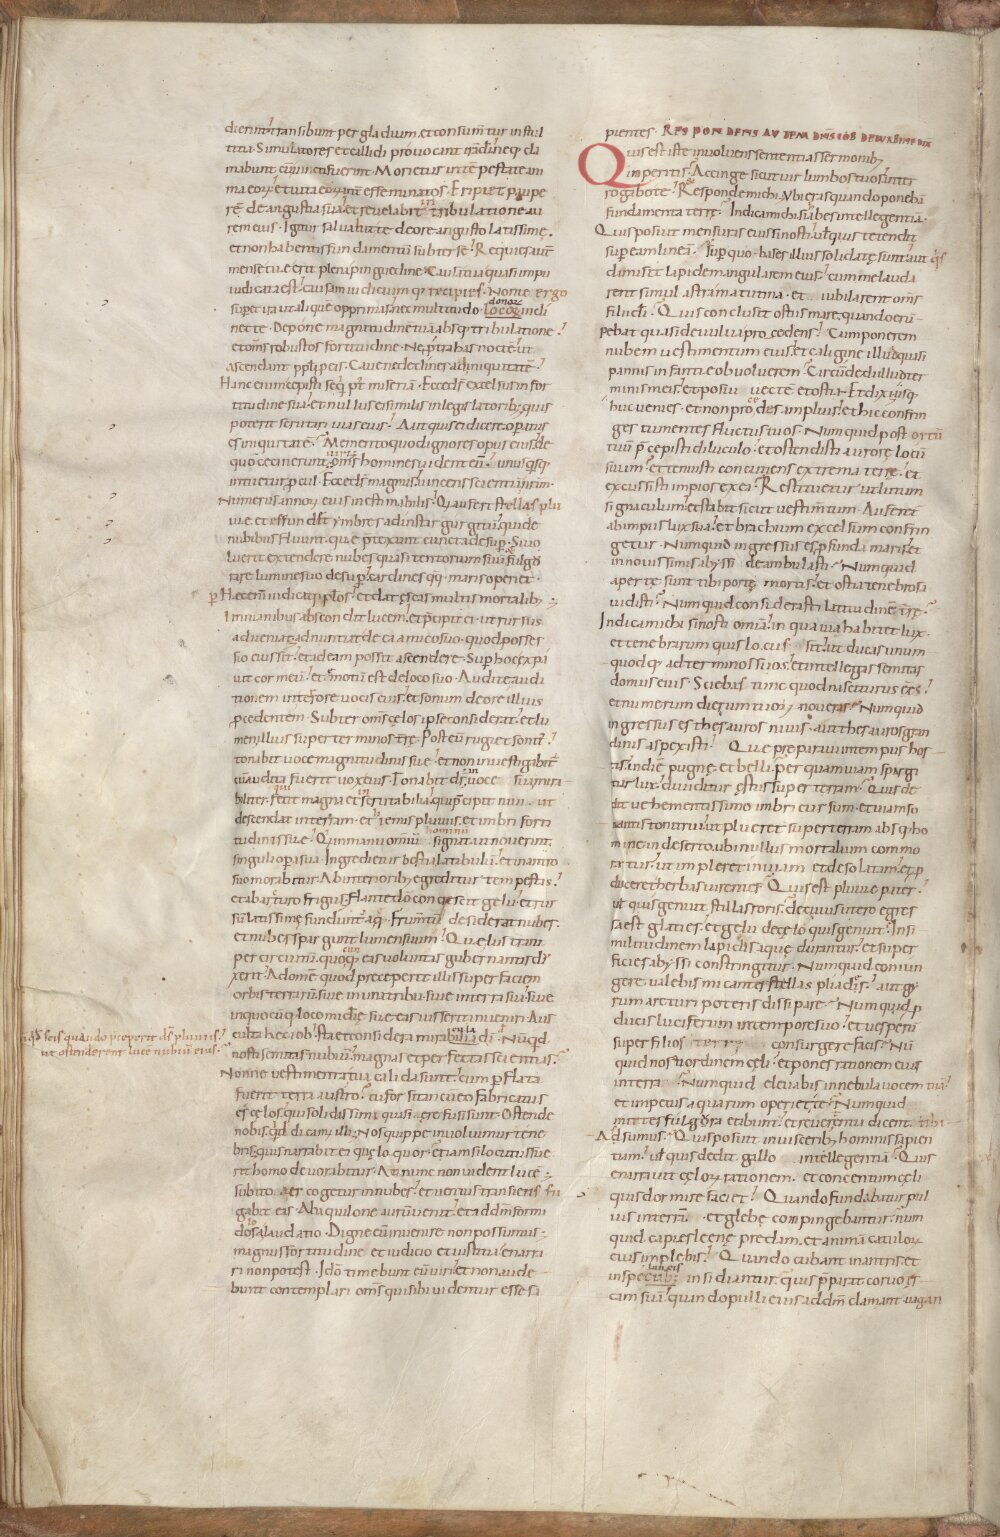 dierint transibunt per gladium. et consum̄tur in stul
titia. Simulatores et callidi provocant irā dī. neq; cla
mabunt cū uincti fuerint. Morietur in tēpestate ani
ma eorū et uita eorū inter effeminatos. Eripiet paupe
rē de angustia sua. et revelabit in tribulatione au
rem eius. Igitur salvabit te de ore angusto latissime.
et non habentis fundamentū subter se. Requies aut̄
mense tuę erit plena pinguedine. Causa tua quasi impii
iudicata est. causam iudiciumq; recipies. Non te ergo
superet ira ut aliquē opprimas. nec multitudo donorū
locoꝝ incli
net te. Depone magnitudinē tuā absq; tribulatione.
et om̄s robustos fortitudine. Ne p̄trahas noctē ut
ascendant pp̄li p eis. Cave ne declines ad iniquitatē.
Hanc enim cepisti seq̄ p̄ miseriā. Ecce dꝰ excelsus in for
titudine sua. et nullus ei similis in legislatorib; quis
poterit scrutari uias eius? Aut quis ei dicere. operatus
es iniquitatē? Memento quod ignores opus eius. de
quo cecinerunt uiri. Om̄s homines uident eū. unus quisq;
intuetur p̄cul. Ecce dꝰ magnus uincens scientiā nr̄am.
Numerus annorū eius inestimabilis. Qui aufert stellas plu
uie. et effundit ymbres ad instar gurgitū. qui de
nubibus fluunt. que p̄texunt cuncta desup. Si uo
luerit extendere nubes quasi tentorium suū. et fulgo
rare lumine suo desup. cardines qq; maris operiet.
P hęc enī iudicat pp̄los. et dat escas multis mortalib;
In manibus abscondit lucem. et p̄cipit ei ut rursus
adveniat. adnuntiat de ea amico suo. quod posses
sio eius sit. et ad eam possit ascendere. Sup hoc expa
uit cor meū. et motū est de loco suo. Audite audi
tionem in terrore uocis eius. et sonum de ore illius
p̄cedentem. Subter om̄s cęlos ipse considerat. et lu
men illius super terminos t̄rę. Post eū rugiet sonit'.
tonabit uoce magnitudinis suę. et non investigabit'
cū audita fuerit uox eius. Tonabit ds̄ in uoce sua mira
biliter. qui facit magna et inscrutabilia. qui p̄cipit nivi. ut
descendat in terram. et hiemis pluviis. et imbri forti
tudinis suę. Qui in manu omniū hominū signat. ut noverint
singuli opera sua. Ingredietur bestia latibulū. et in antro
suo morabitur. Ab interiorib; egredietur tempestas.
et ab arcturo frigus. Flante dō concrescit gelu. et rur
sū latissimę fundunt' aquę. Frumtū desiderat nubes.
et nubes spargunt lumen suum. Que lustrant
per circuitū. quocūq; eas voluntas gubernantis du
xerit. Ad om̄e quod preceperit illis super faciem
orbis terrarū. sive in una tribu. sive in terra sua. sive
in quocūq; loco mis̄die suę eas iusserit inveniri. Aus
culta hec iob. sta et considera mirabilia dī. Nūq̄d
nosti semitas nubiū. magnas et perfectas scientias.
Nonne vestimenta tua calida sunt. cum p̄flata
fuerit terra austro? Tu forsitan cū eo fabricatus
es cęlos. qui solidissimi quasi ęre fusi sunt. Ostende
nobis. qd̄ dicam illi. Nos quippe involuimur tene
bris. quis narrabit ei quę loquor? etiam si locutus fue
rit homo devorabitur. At nunc non vident lucē
subito aer cogetur in nubes. et ventus transiens fu
gabit eas. Ab aquilone aurū venit. et ad dm̄ formi
dolosa laudatio. Digne eū invenire non possumus.
magnus fortitudine. et iudicio et iustitia. enarra
ri non potest. Ideo timebunt eū viri. et non aude
bunt contemplari om̄s qui sibi videntur esse sa
scis quando preceperit ds̄ pluviis.
ut ostenderent lucē nubiū eius.
pientes. RESPONDENS AUTEM DN̄S IOB DE TURBINE DIX̄
Quis est iste involvens sententias sermonib;
inperitis? Accinge sicut vir lumbos tuos. inter
rogabo te. et Responde michi. Vbi eras quando ponebā
fundamenta terrę? Indica michi si habes intellegentiā.
Quis posuit mensuras eius si nosti. ūl quis tetendit
sup eam lineā? Super quo bases illius solidatę sunt. aut q̄s
dimisit lapidem angularem eius? cum me lauda
rent simul astra matutina. et iubilarent om̄s
filii dī. Quis conclusit ostiis mare. quando erū
pebat quasi de vulva procedens? Cum ponerem
nubem vestimentum eius. et caligine illud quasi
pannis infantię obvolverem? Circūdedi illud ter
minis meis. et posui vectē et ostia. Et dixi. usq;
huc venies. et non procedes amplius. et hic confrin
ges tumentes fluctus tuos. Numquid post ortū
tuū p̄cepisti diluculo. et ostendisti aurorę locū
suum? et tenuisti concutiens extrema terrę. et
excussisti impios ex ea? Restituetur ut lutum
signaculum. et stabit sicut vestimtum. Auferet'
ab impiis lux sua. et brachium excelsum confrin
getur. Numquid ingressus es p̄funda maris. et
in novissimis abyssi deambulasti? Numquid
apertę sunt tibi portę mortis. et ostia tenebrosa
vidisti? Numquid considerasti latitudinē t̄rę?
Indica michi si nosti omnia. in qua via habitet lux.
et tenebrarum quis locus sit. ut ducas unum
quodq; ad terminos suos. et intellegas semitas
domus eius. Sciebas tunc quod nasciturus eēs?
et numerum dierum tuorū noveras? Numquid
ingressus es thesauros nivis. aut thesauros gran
dinis aspexisti? Que preparavi in tempus hos
tis in diē pugnę et belli. Per quam viam spargi
tur lux. dividitur ęstus super terram? Quis de
dit vehementissimo imbri cursum. et viam so
nantis tonitrui. ut plueret super terram absq; ho
mine in deserto. ubi nullus mortalium commo
ratur. ut impleret inviam et desolatam. et p
duceret herbas virentes? Quis est pluvie pater?
ūl quis genuit stillas roris? de cuius utero egres
sa est glaties. et gelu de cęlo quis genuit? In si
militudinem lapidis aquę durantur. et super
ficies abyssi constringitur. Numquid coniun
gere valebis micantes stellas pliadis? aut gy
rum arcturi poteris dissipare? Numquid p
ducis luciferum in tempore suo. et vesperū
super filios terrę consurgere facis? Nū
quid nosti ordinem cęli. et pones rationem eius
in terra? Numquid elevabis in nebula vocem tuā?
et impetus aquarum operiet te? Numquid
mittes fulgora et ibunt. et revertentia dicent tibi
Adsumus? Quis posuit in visceribus hominis sapien
tiam? ūl quis dedit gallo intellegentiā? Quis
enarravit cęlorū rationem. et concentum cęli
quis dormire faciet? Quando fundabatur pul
vis in terrā. et glebę compingebantur? num
quid capies leene predam. et animā catulorū
eius implebis? Quando cubant in antris. et
in specub; insidiantur? quis p̄parat corvo es
cam suā. quando pulli eius ad dm̄ clamant vagan